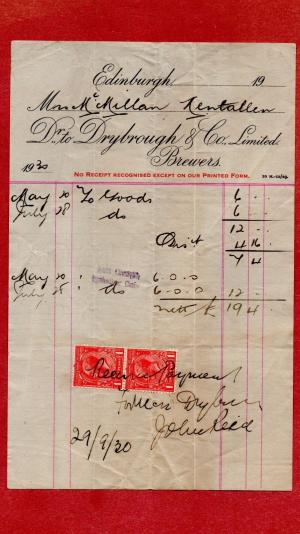 Edinburgh, 19
Mrs McMillan Kentallen
Dr. to Drybrough & Co. Limited.
Brewers.
1930
NO RECEIPT RECOGNISED EXCEPT ON OUR PRINTED FORM.
May 20 To Goods 6 - -
July 28 do 6 - -
12 - -
Disct 4 16 -
7 4
May 20 6-0-0
July 28 do 6-0-0 12 - -
nett £ 19 4
Received Payment
for Mess Drybrough
John Reid
29/9/30